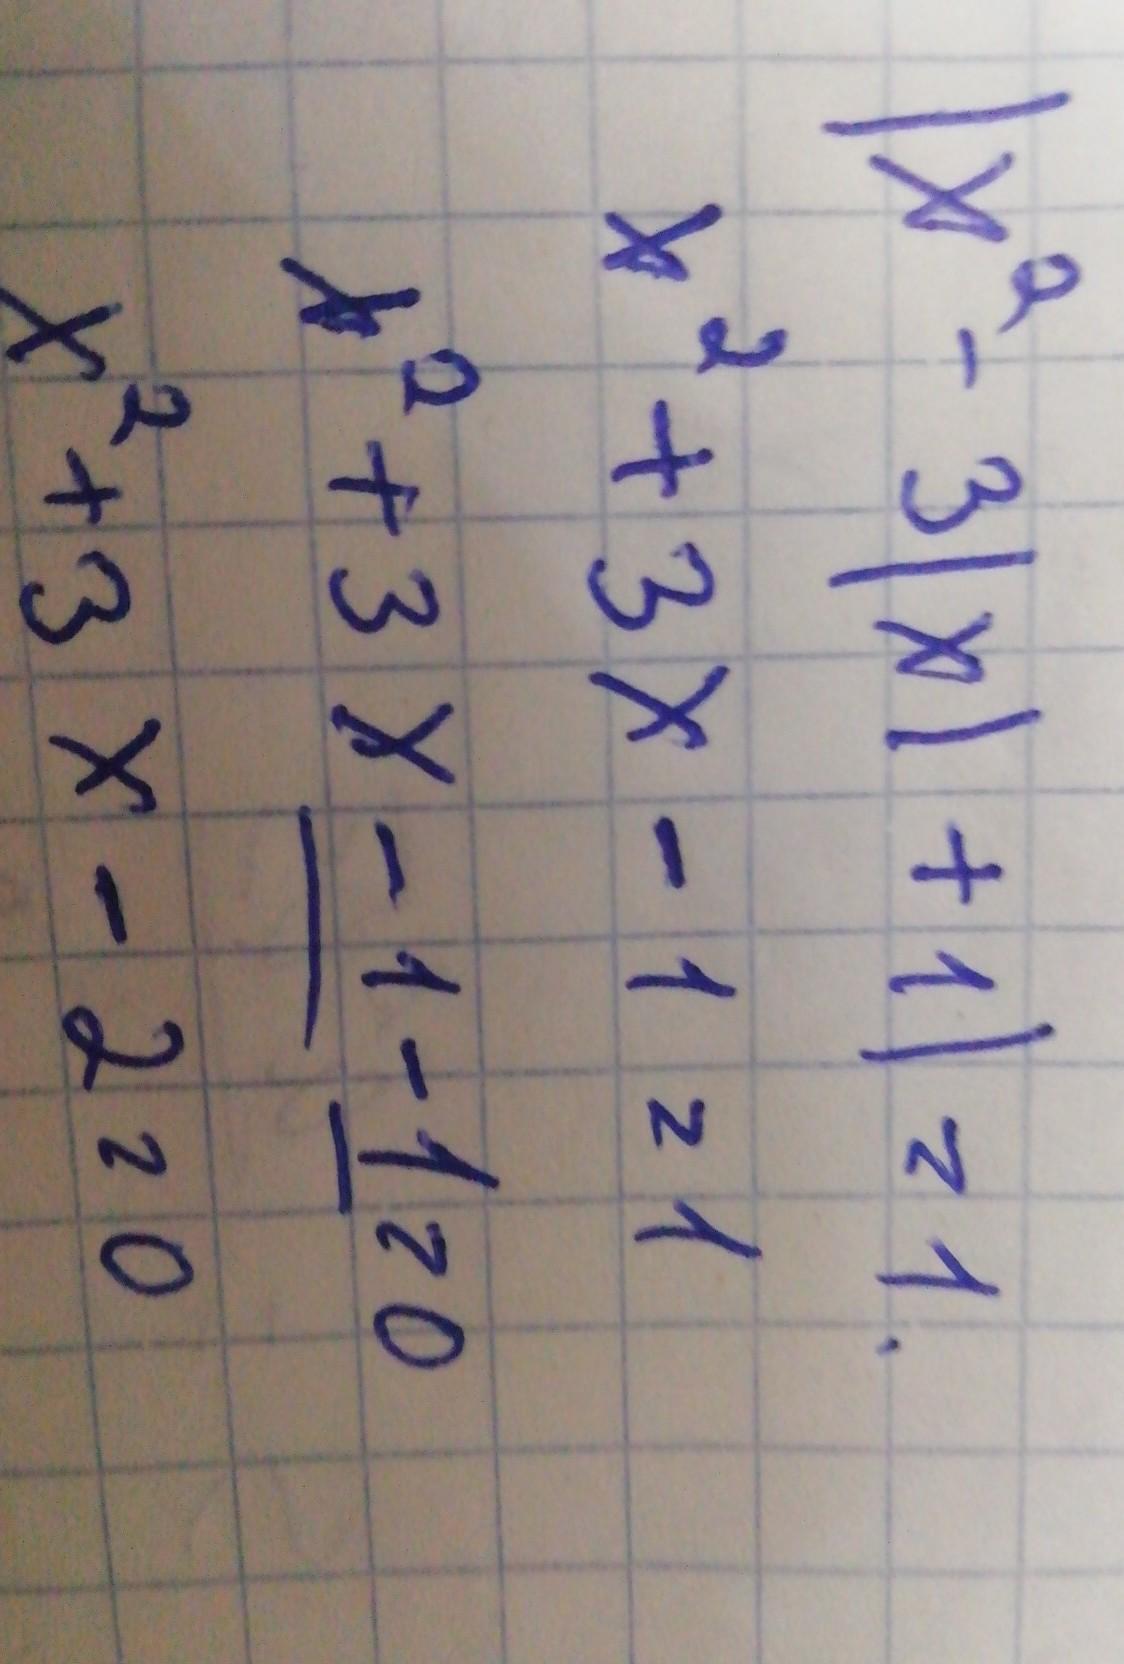 |x² - 3|x| + 1| = 1.
x² + 3x - 1 = 1
x² + 3x - 1 - 1 = 0
x² + 3x - 2 = 0